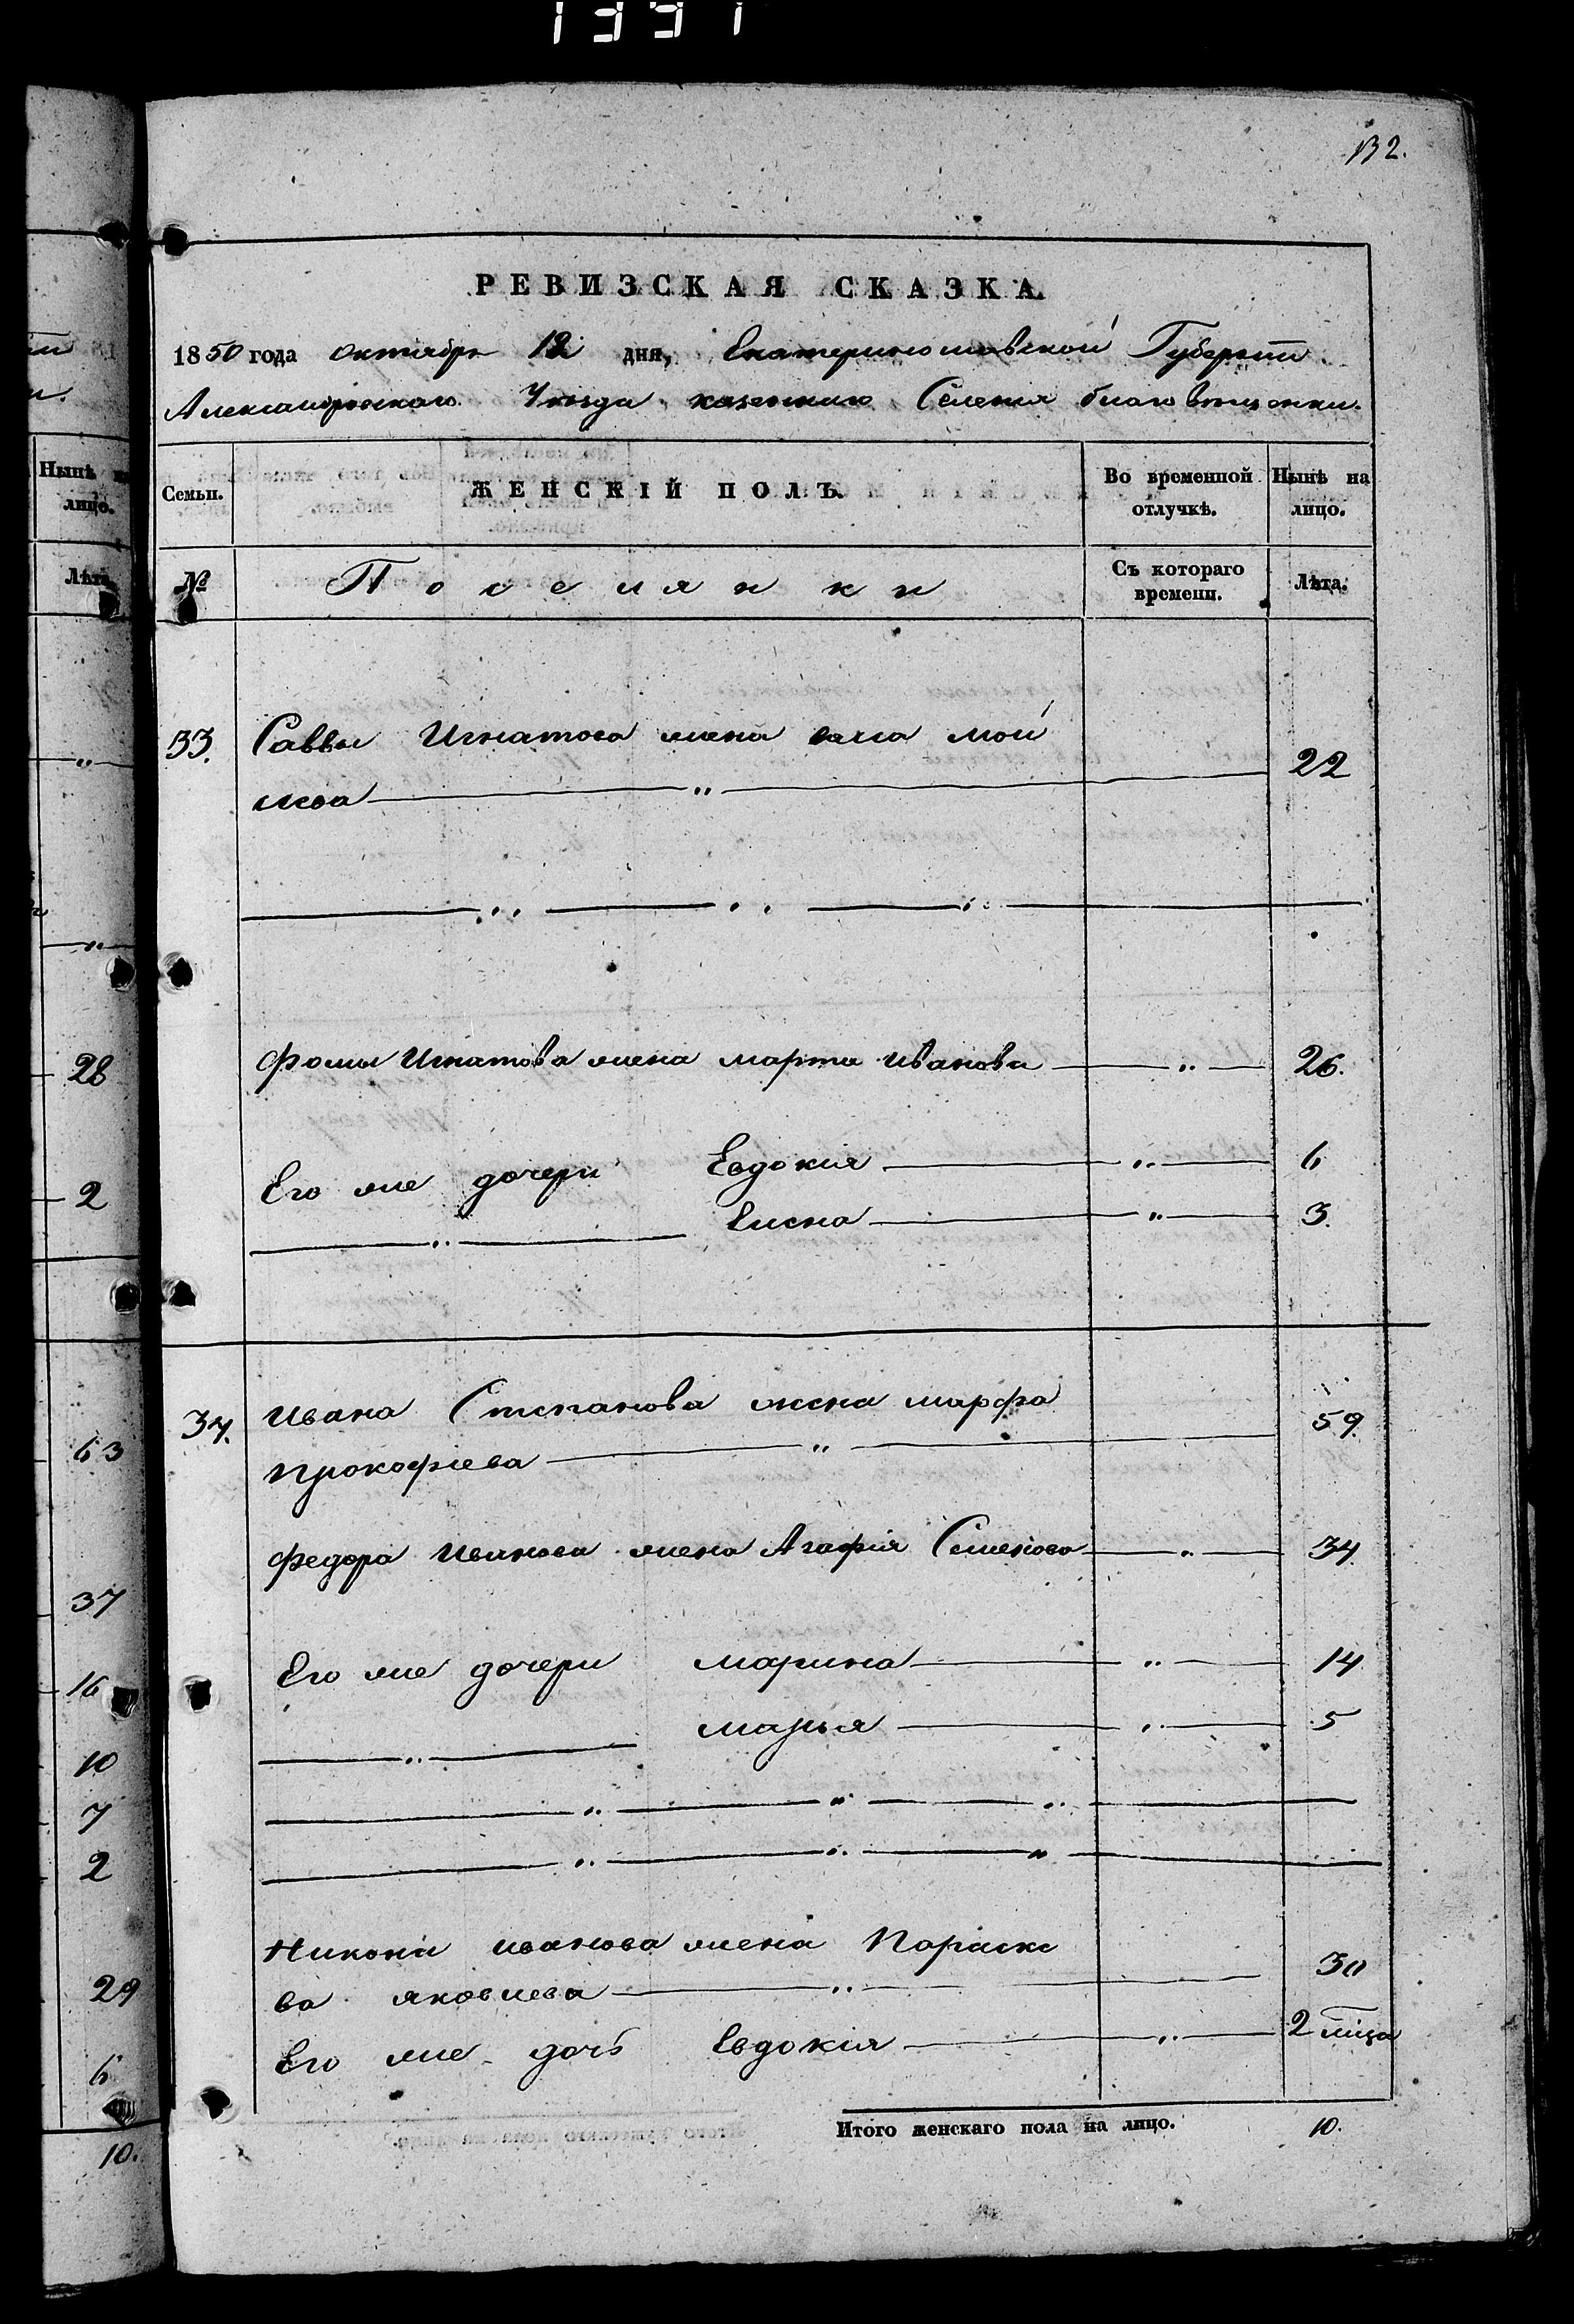 1331
132.
РЕВИЗСКАЯ СКАЗКА.
1850 года октября 12 дня, Екатеринославской Губерніи
Александровскаго Уѣзда казеннаго Селенія благовѣщенки.
Нынѣ
лицо.
Семьи.
ЖЕНСКІЙ ПОЛЪ.
Во временной отлучкѣ.
Нынѣ на лицо.
Лѣта
№
Поселянки
Съ котораго времени.
Лѣта.
33. Саввы Игнатова жена мой
22
сеева
Фомы Игнатова жена марта иванова 26.
28
Его же дочери Евдокія 6
2
Елена 3.
34. Ивана Степанова жена марфа
59.
63
прокофіева
Федора Иванова жена Агафія Семенова 34
37
Его же дочери марина 14
16
марья 5
10
7
2
Никона иванова жена Параске
30
29
ва яковлева
Его же дочь Евдокія 2 мѣца
6
Итого женскаго пола на лицо. 10.
10.